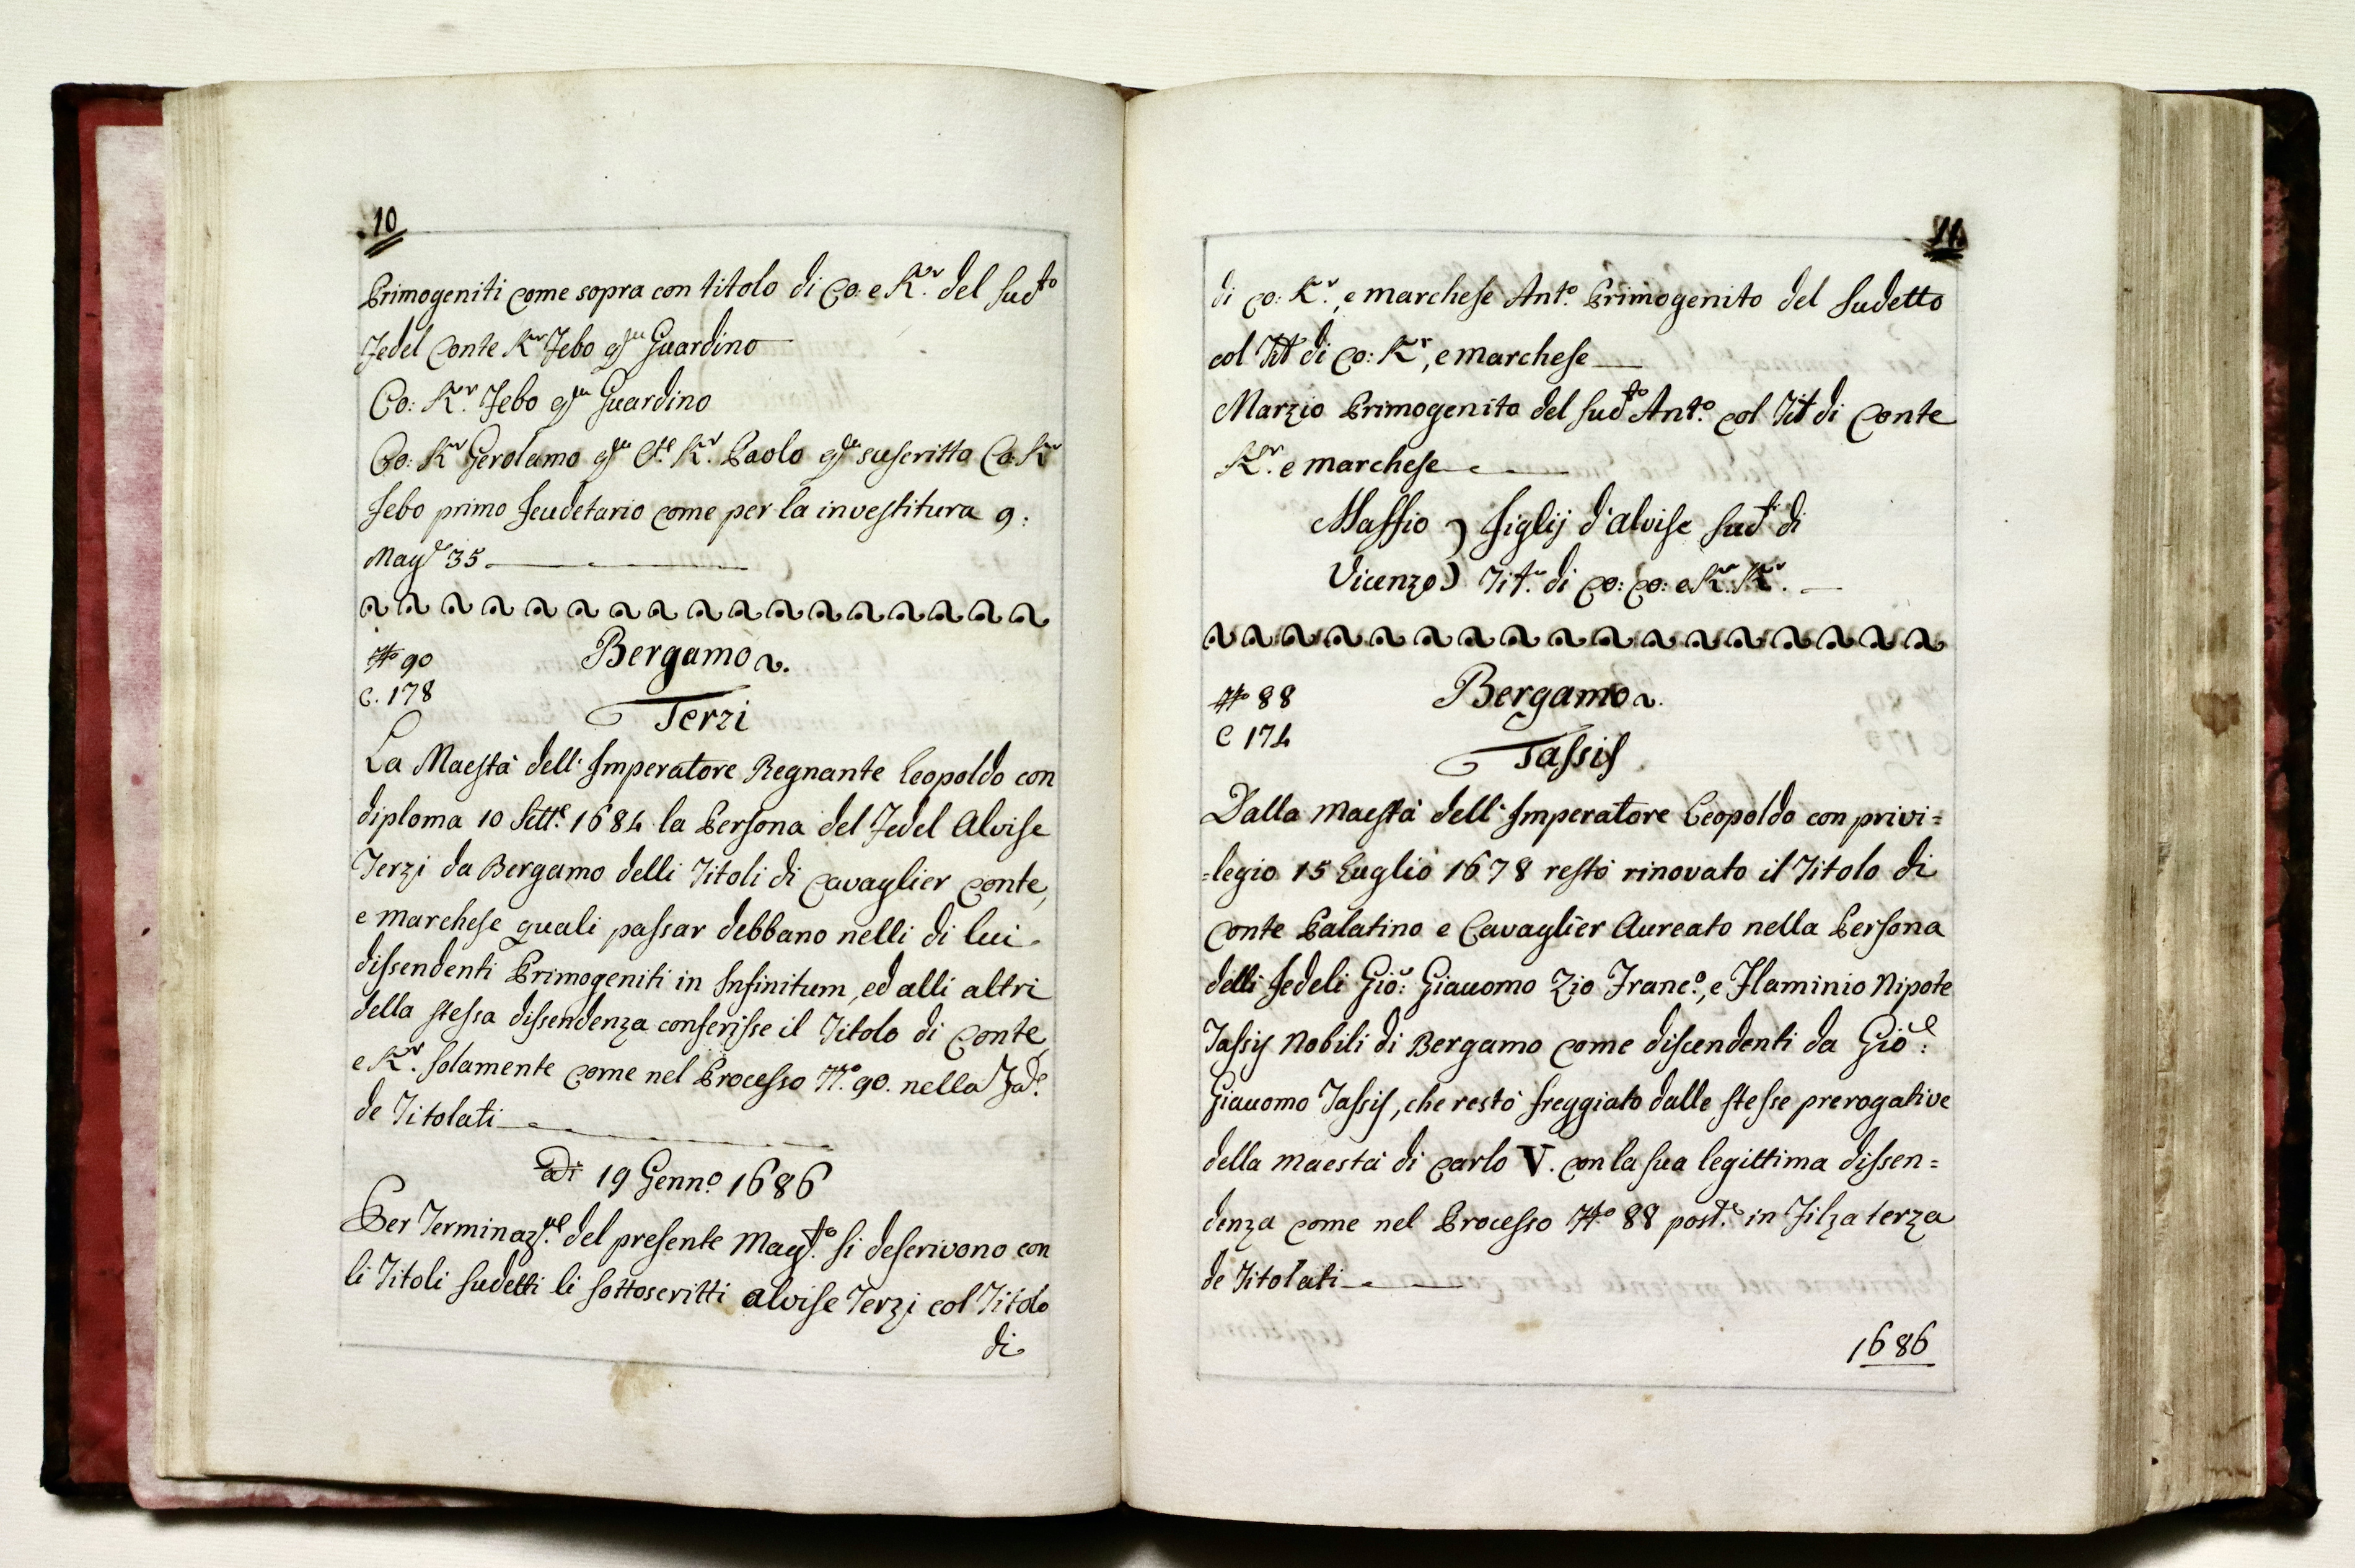 10
Primogeniti come sopra con titolo di Co: e K.r del sud.to
Fedel Conte K.r Febo q.m Guardino
Co: K.r Febo q.m Guardino
Co: K.r Gerolamo q.m K.r Paolo q.m suscritto Co: K.r
Febo primo feudetario come per la investitura 9:
Magg.o 35
N.o 90
Bergamo
C. 178
Terzi
La Maestà dell' Imperatore Regnante Leopoldo con
diploma 10 Sett.e 1684 la Persona del Fedel Alvise
Terzi da Bergamo delli Titoli di Cavaglier Conte,
e Marchese quali passar debbano nelli di lui
dissendenti Primogeniti in Infinitum, ed alli altri
della stessa dissendenza conferisse il Titolo di Conte
e K.r solamente come nel Processo N.o 90. nella
de Titolati
Adi 19 Genn.o 1686
Per Terminaz.ne del presente Mag.to si descrivono con
li Titoli sudetti li sottoscritti Alvise Terzi col Titolo
di
11
di Co: K.r, e Marchese Ant.o Primogenito del sudetto
col Tit di Co: K.r, e Marchese
Marzio Primogenito del sud.to Ant.o col Tit di Conte
K.r e Marchese
Maffio ) figlij d'Alvise sud.o di
Vicenzo ) Tit. di Co: Co: e K.r K.r
N.o 88
Bergamo
C 174
Tassis
Dalla Maestà dell' Imperatore Leopoldo con privi=
=legio 15 Luglio 1678 restò rinovato il Titolo di
Conte Palatino e Cavaglier Aureato nella Persona
delli fedeli Gio: Giacomo Zio Franc.o, e Flaminio Nipote
Tassis Nobili di Bergamo come discendenti da Gio:
Giacomo Tassis, che restò freggiato dalle stesse prerogative
della Maestà di Carlo V. con la sua legittima dissen=
denza come nel Processo N.o 88 post.o in Filza terza
de Titolati
1686